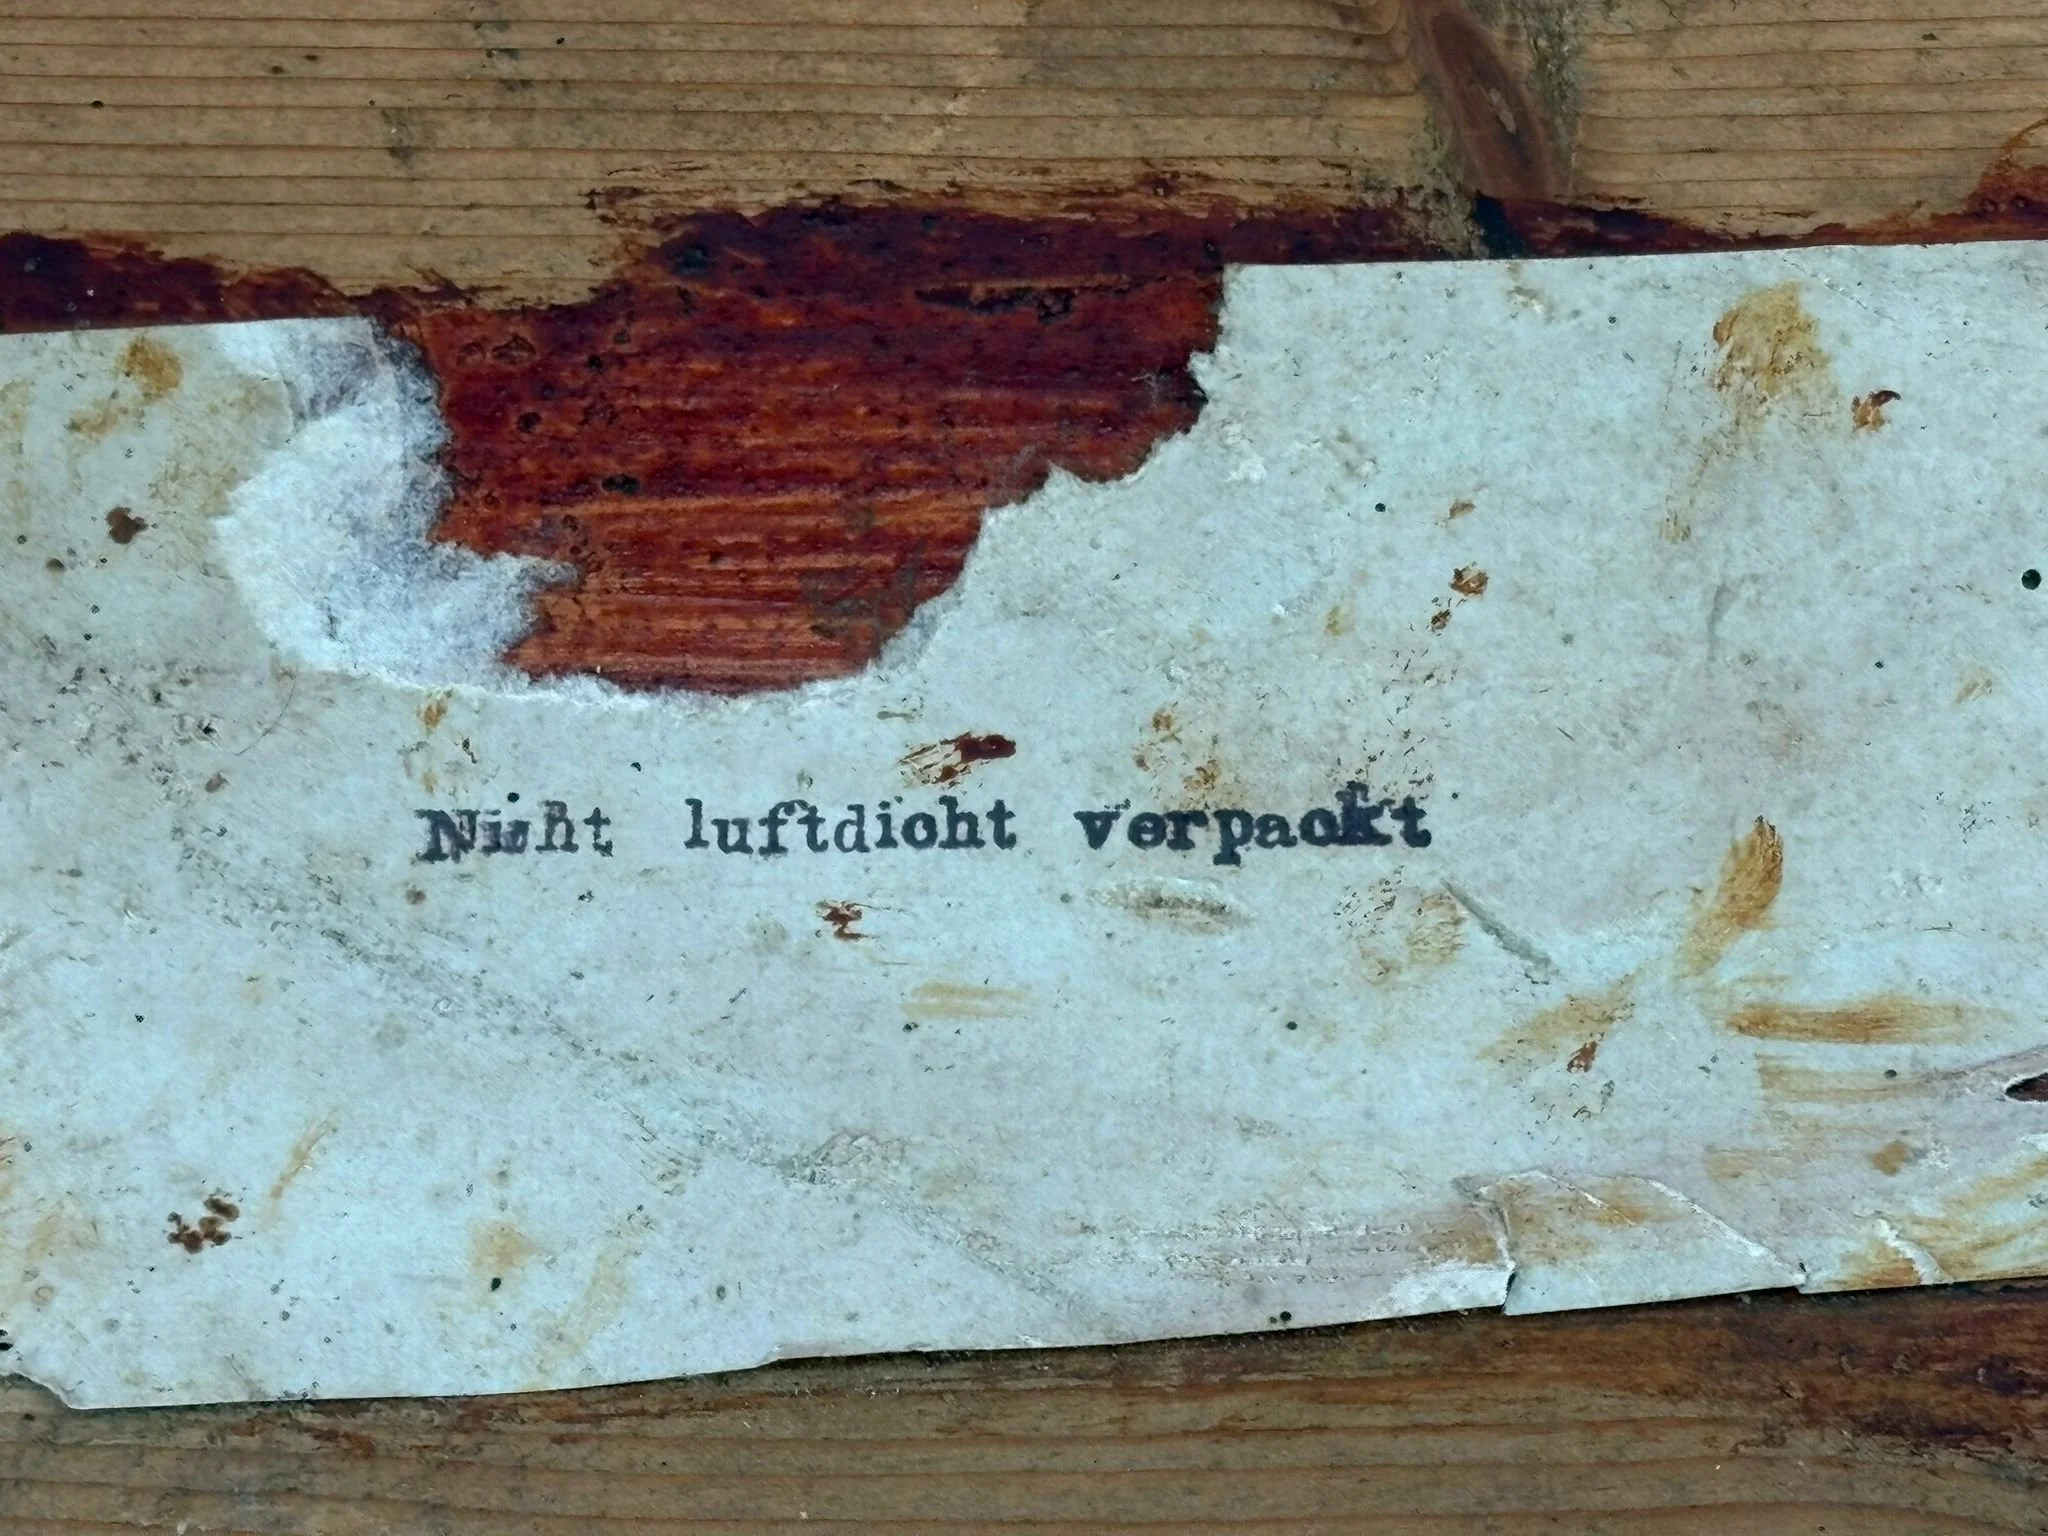 Nicht luftdicht verpackt